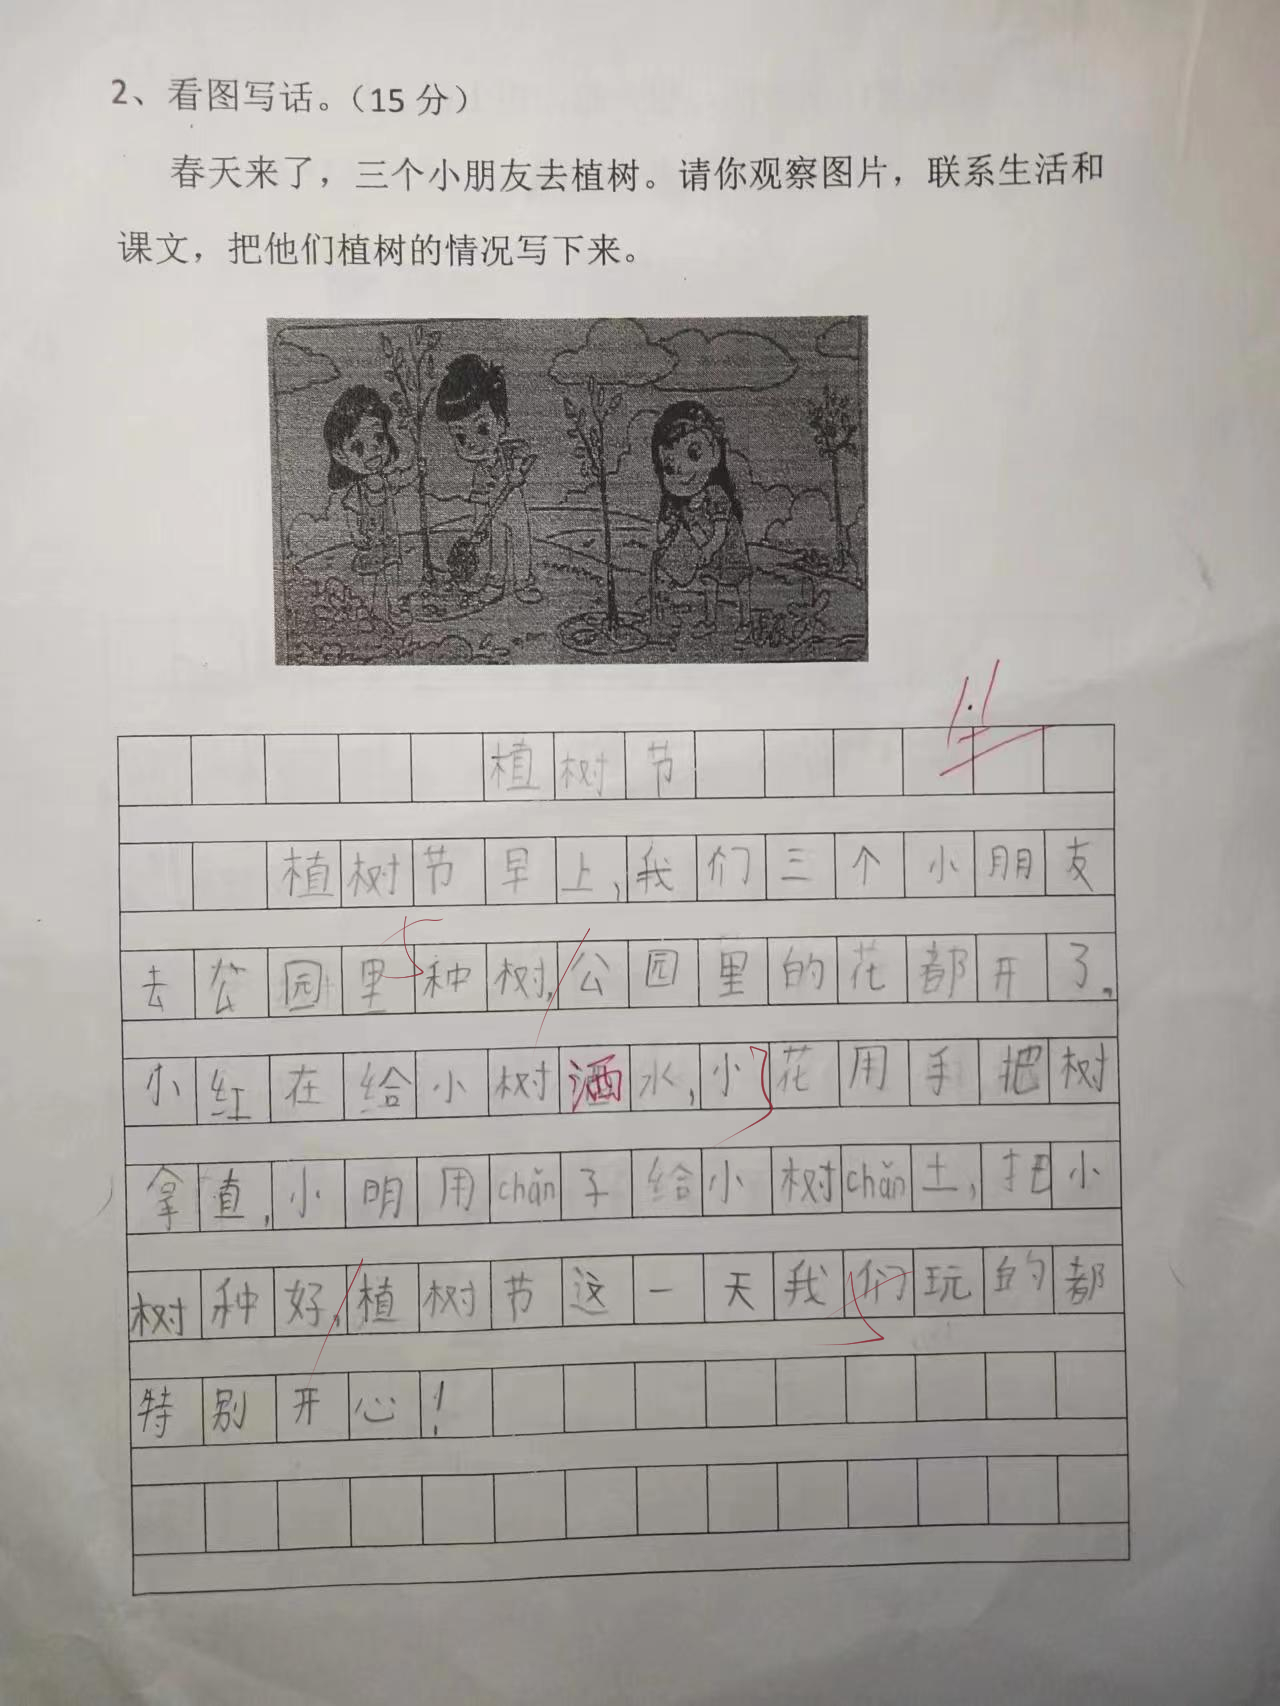 2、看图写话。（15 分）
春天来了，三个小朋友去植树。请你观察图片，联系生活和
课文，把他们植树的情况写下来。
植树节
植树节早上,我们三个小朋友
去公园里种树,公园里的花都开了,
小红在给小树洒水,小花用手把树
拿直,小明用chǎn子给小树chǎn土,把小
树种好,植树节这一天我们玩的都
特别开心!